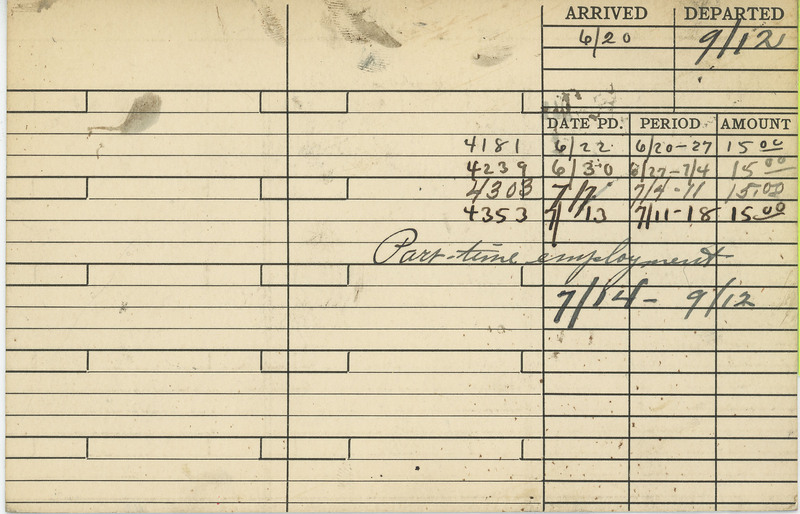 ARRIVED DEPARTED
6/20 9/12
DATE PD. PERIOD AMOUNT
4181 6/22 6/20-27 15 00
4239 6/30 6/27-7/4 15 00
4303 7/7 7/4-11 15.00
4353 7/13 7/11-18 15.00
Part-time employment
7/14- 9/12